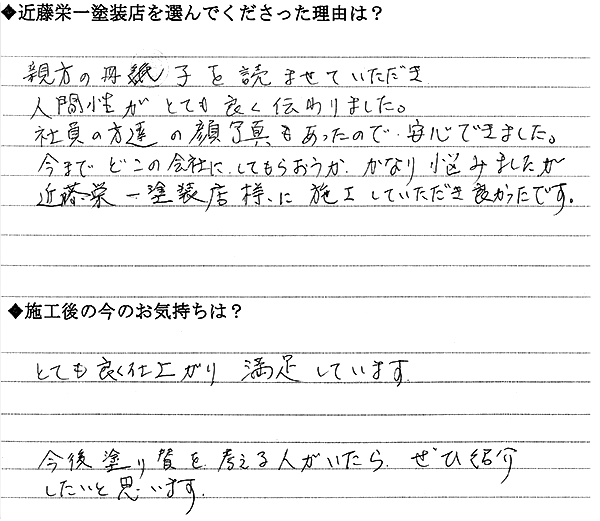 ◆近藤栄一塗装店を選んでくださった理由は？
親方の冊子を読ませていただき
人間性がとても良く伝わりました。
社員の方達の顔写真もあったので、安心できました。
今までどこの会社にしてもらおうか、かなり悩みましたが
近藤栄一塗装店様に施工していただき良かったです。
◆施工後の今のお気持ちは？
とても良く仕上がり 満足しています。
今後塗り替を考える人がいたら、ぜひ紹介
したいと思います。